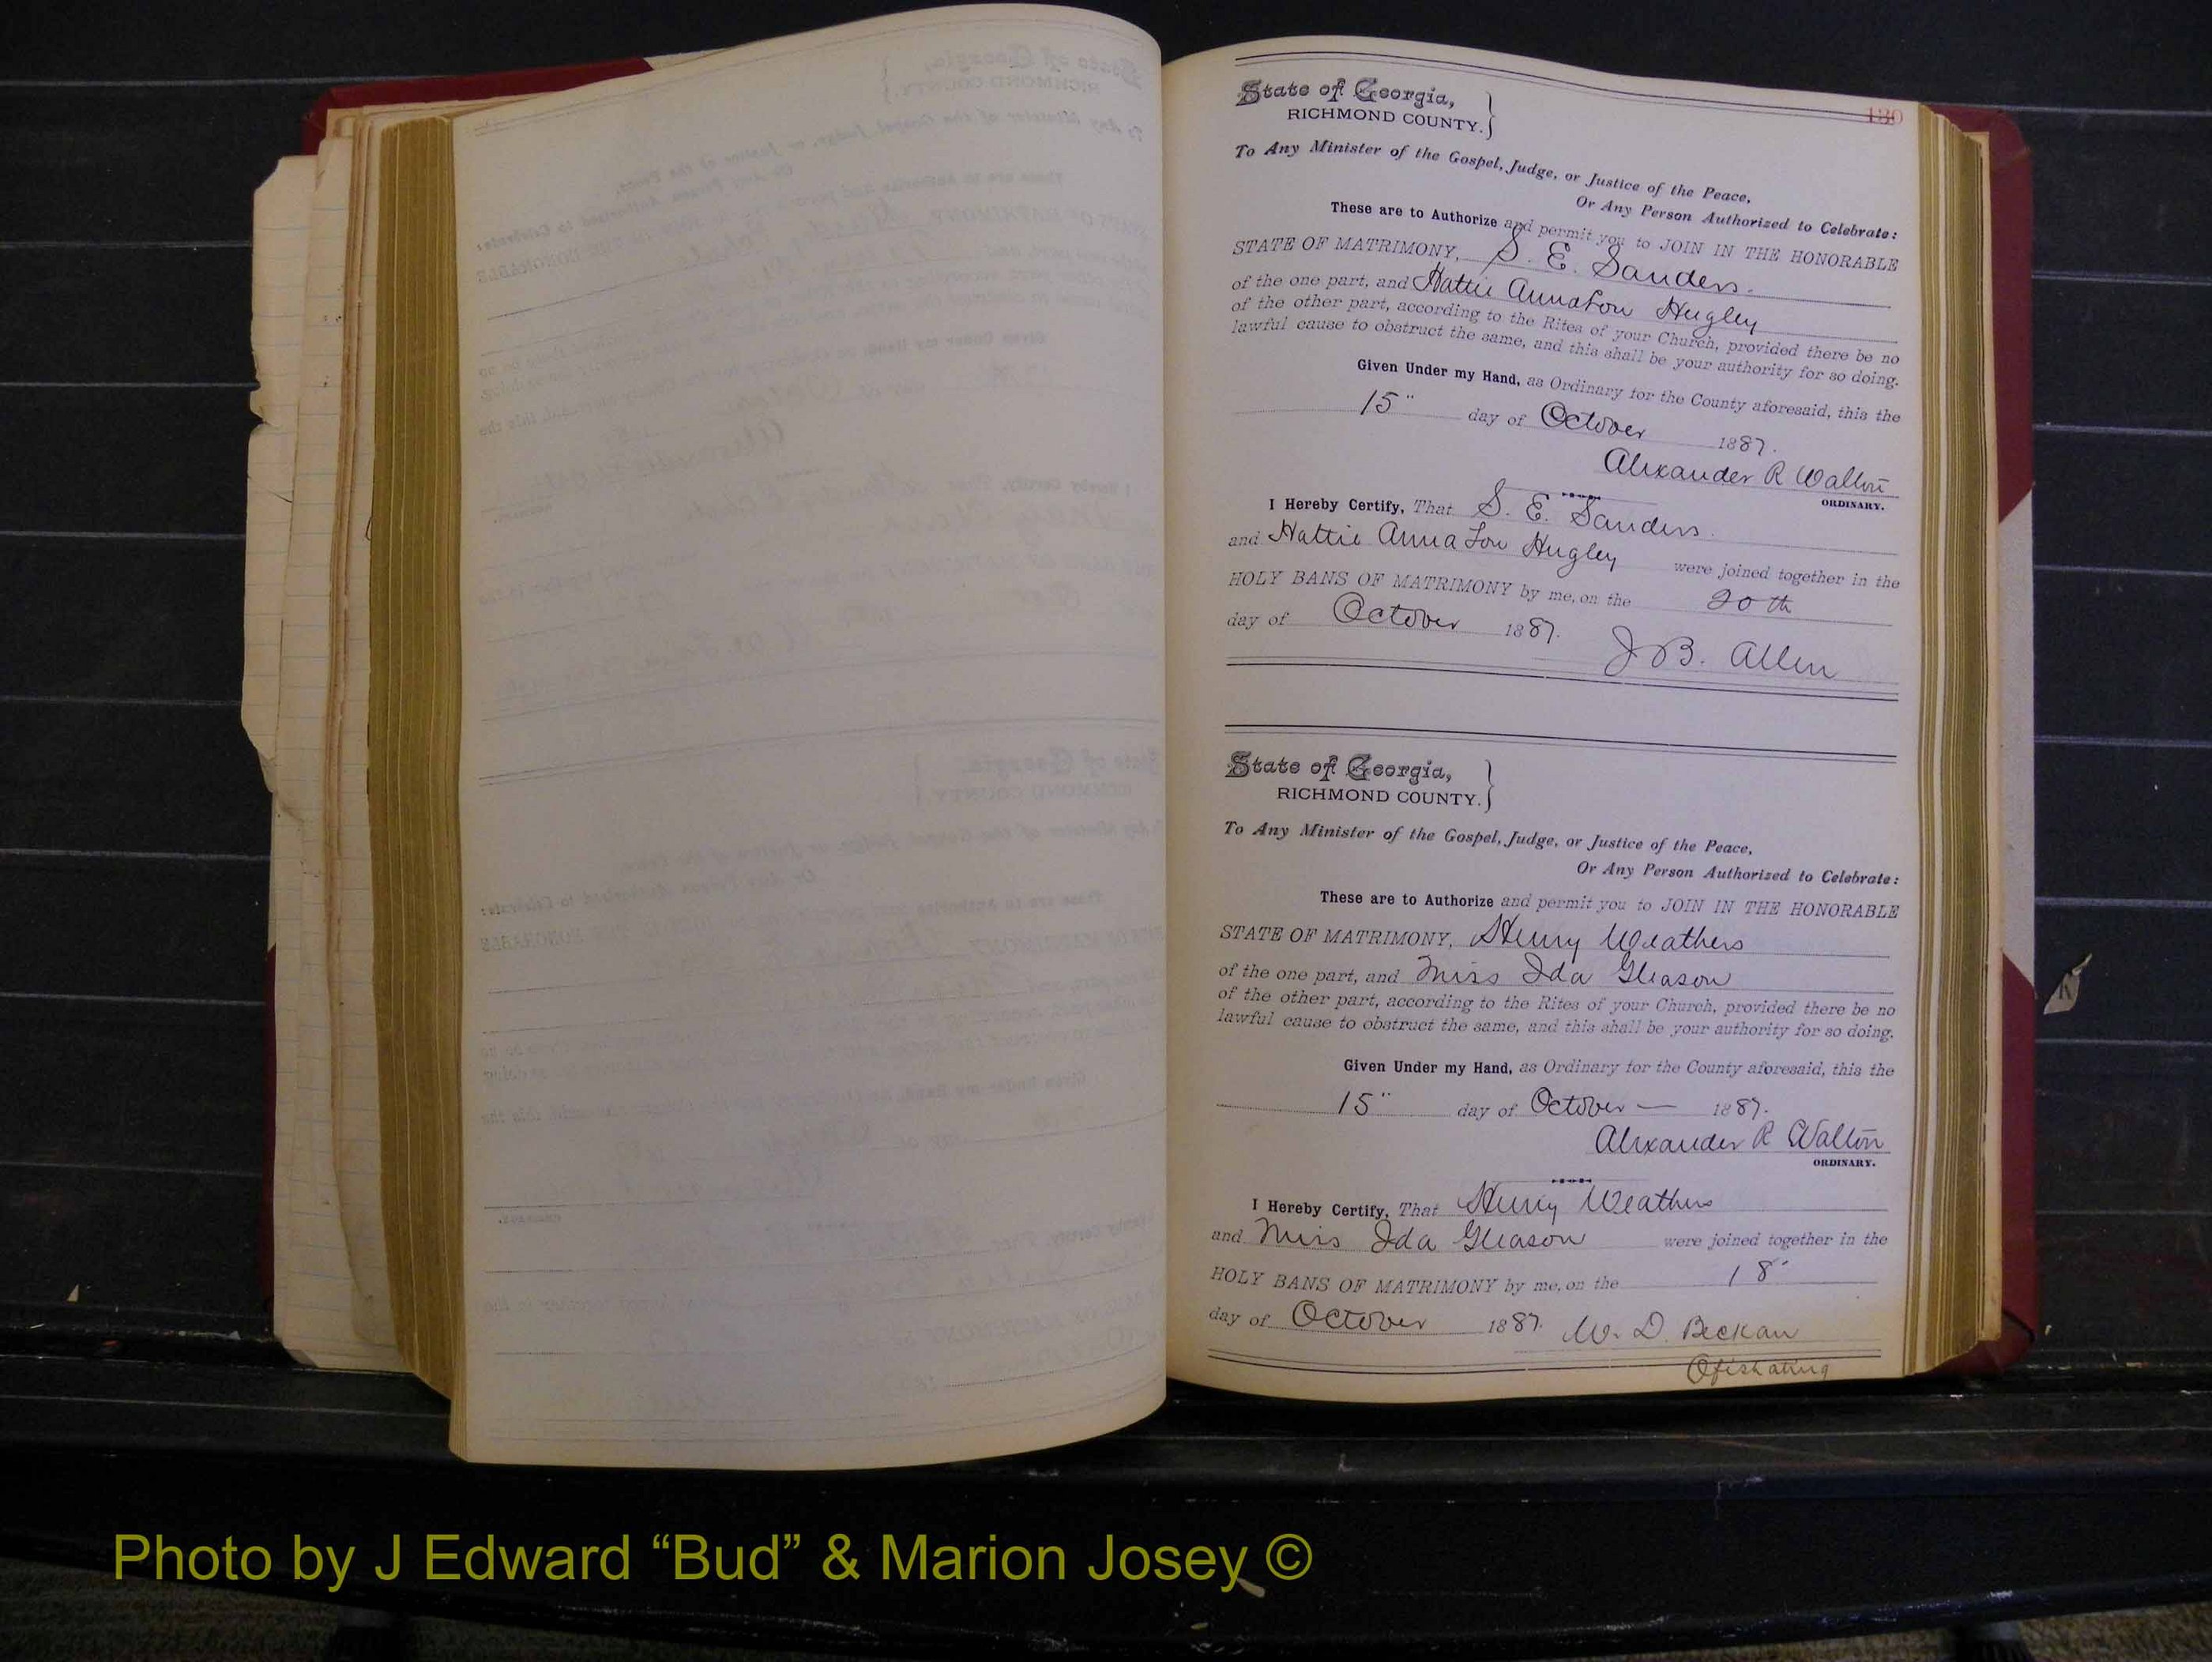 130
State of Georgia,
RICHMOND COUNTY.
To Any Minister of the Gospel, Judge, or Justice of the Peace,
Or Any Person Authorized to Celebrate:
These are to Authorize and permit you to JOIN IN THE HONORABLE
STATE OF MATRIMONY, S. E. Sanders.
of the one part, and Hattie Anna Lou Hugley
of the other part, according to the Rites of your Church, provided there be no
lawful cause to obstruct the same, and this shall be your authority for so doing.
Given Under my Hand, as Ordinary for the County aforesaid, this the
15" day of October 1887.
Alexander R Walton
ORDINARY.
I Hereby Certify, That S. E. Sanders.
and Hattie Anna Lou Hugley were joined together in the
HOLY BANS OF MATRIMONY by me, on the 20th
day of October 1887.
J B. Allen
State of Georgia,
RICHMOND COUNTY.
To Any Minister of the Gospel, Judge, or Justice of the Peace,
Or Any Person Authorized to Celebrate:
These are to Authorize and permit you to JOIN IN THE HONORABLE
STATE OF MATRIMONY, Henry Weathers
of the one part, and Miss Ida Gleason
of the other part, according to the Rites of your Church, provided there be no
lawful cause to obstruct the same, and this shall be your authority for so doing.
Given Under my Hand, as Ordinary for the County aforesaid, this the
15" day of October — 1887.
Alexander R Walton
ORDINARY.
I Hereby Certify, That Henry Weathers
and Miss Ida Gleason were joined together in the
HOLY BANS OF MATRIMONY by me, on the 18"
day of October 1887. W. D. Beckan
Ofishating
Photo by J Edward “Bud” & Marion Josey ©